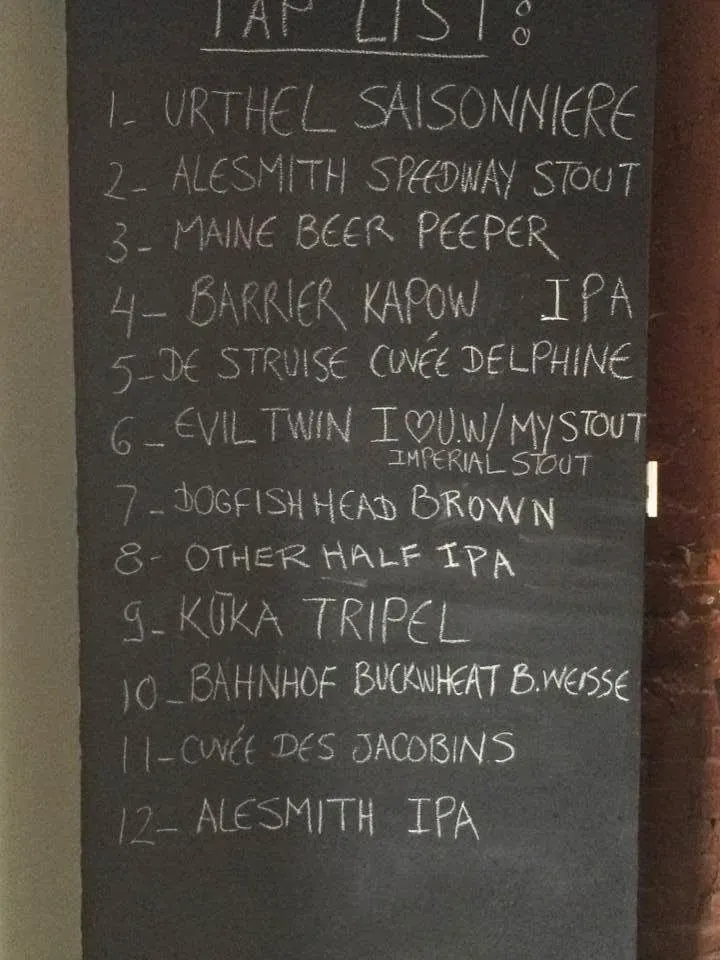 TAP LIST:
1- URTHEL SAISONNIERE
2- ALESMITH SPEEDWAY STOUT
3- MAINE BEER PEEPER
4- BARRIER KAPOW IPA
5- DE STRUISE CUVÉE DELPHINE
6- EVIL TWIN I ♡ U.W/ MY STOUT
IMPERIAL STOUT
7- DOGFISH HEAD BROWN
8- OTHER HALF IPA
9- KŪKA TRIPEL
10- BAHNHOF BUCKWHEAT B. WEISSE
11- CUVÉE DES JACOBINS
12- ALESMITH IPA